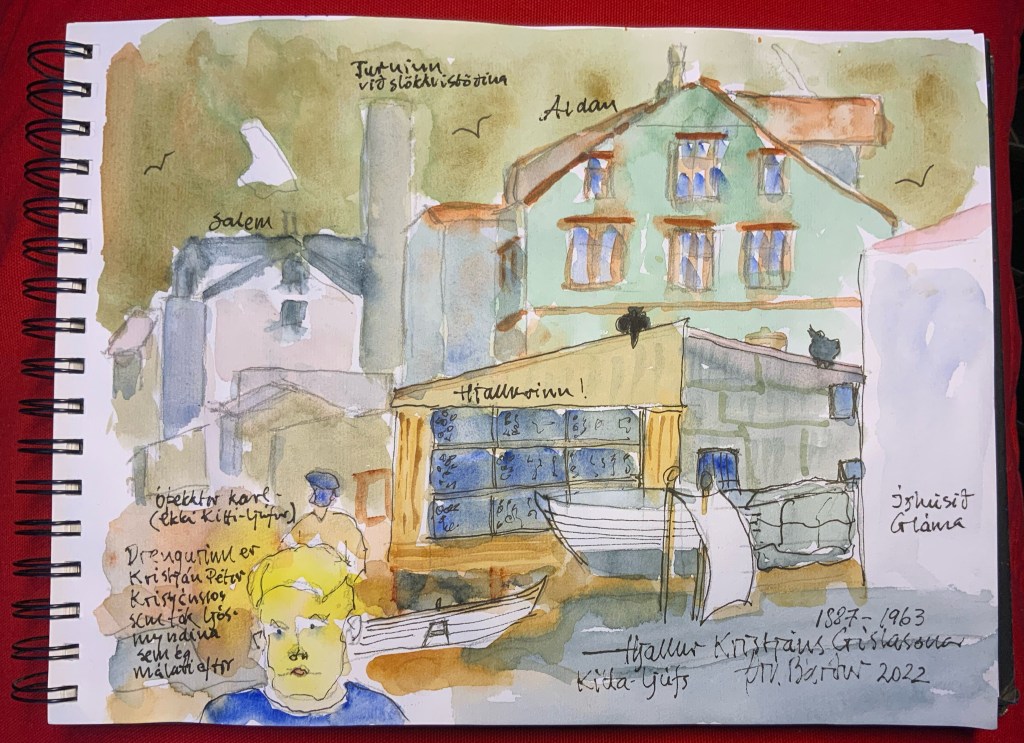 Turninn
við slökkvistöðina
Aldan
Salem
Hjallurinn!
Óþekktur karl-
(ekki Kitti-ljúfur)
Drengurinn er
Kristján Pétur
sem tók ljós-
myndina
sem ég
málaði eftir
Íshúsið
Gláma
1887-1963
Hjallur Kristjáns Gíslasonar
Kitta-ljúfs
2022